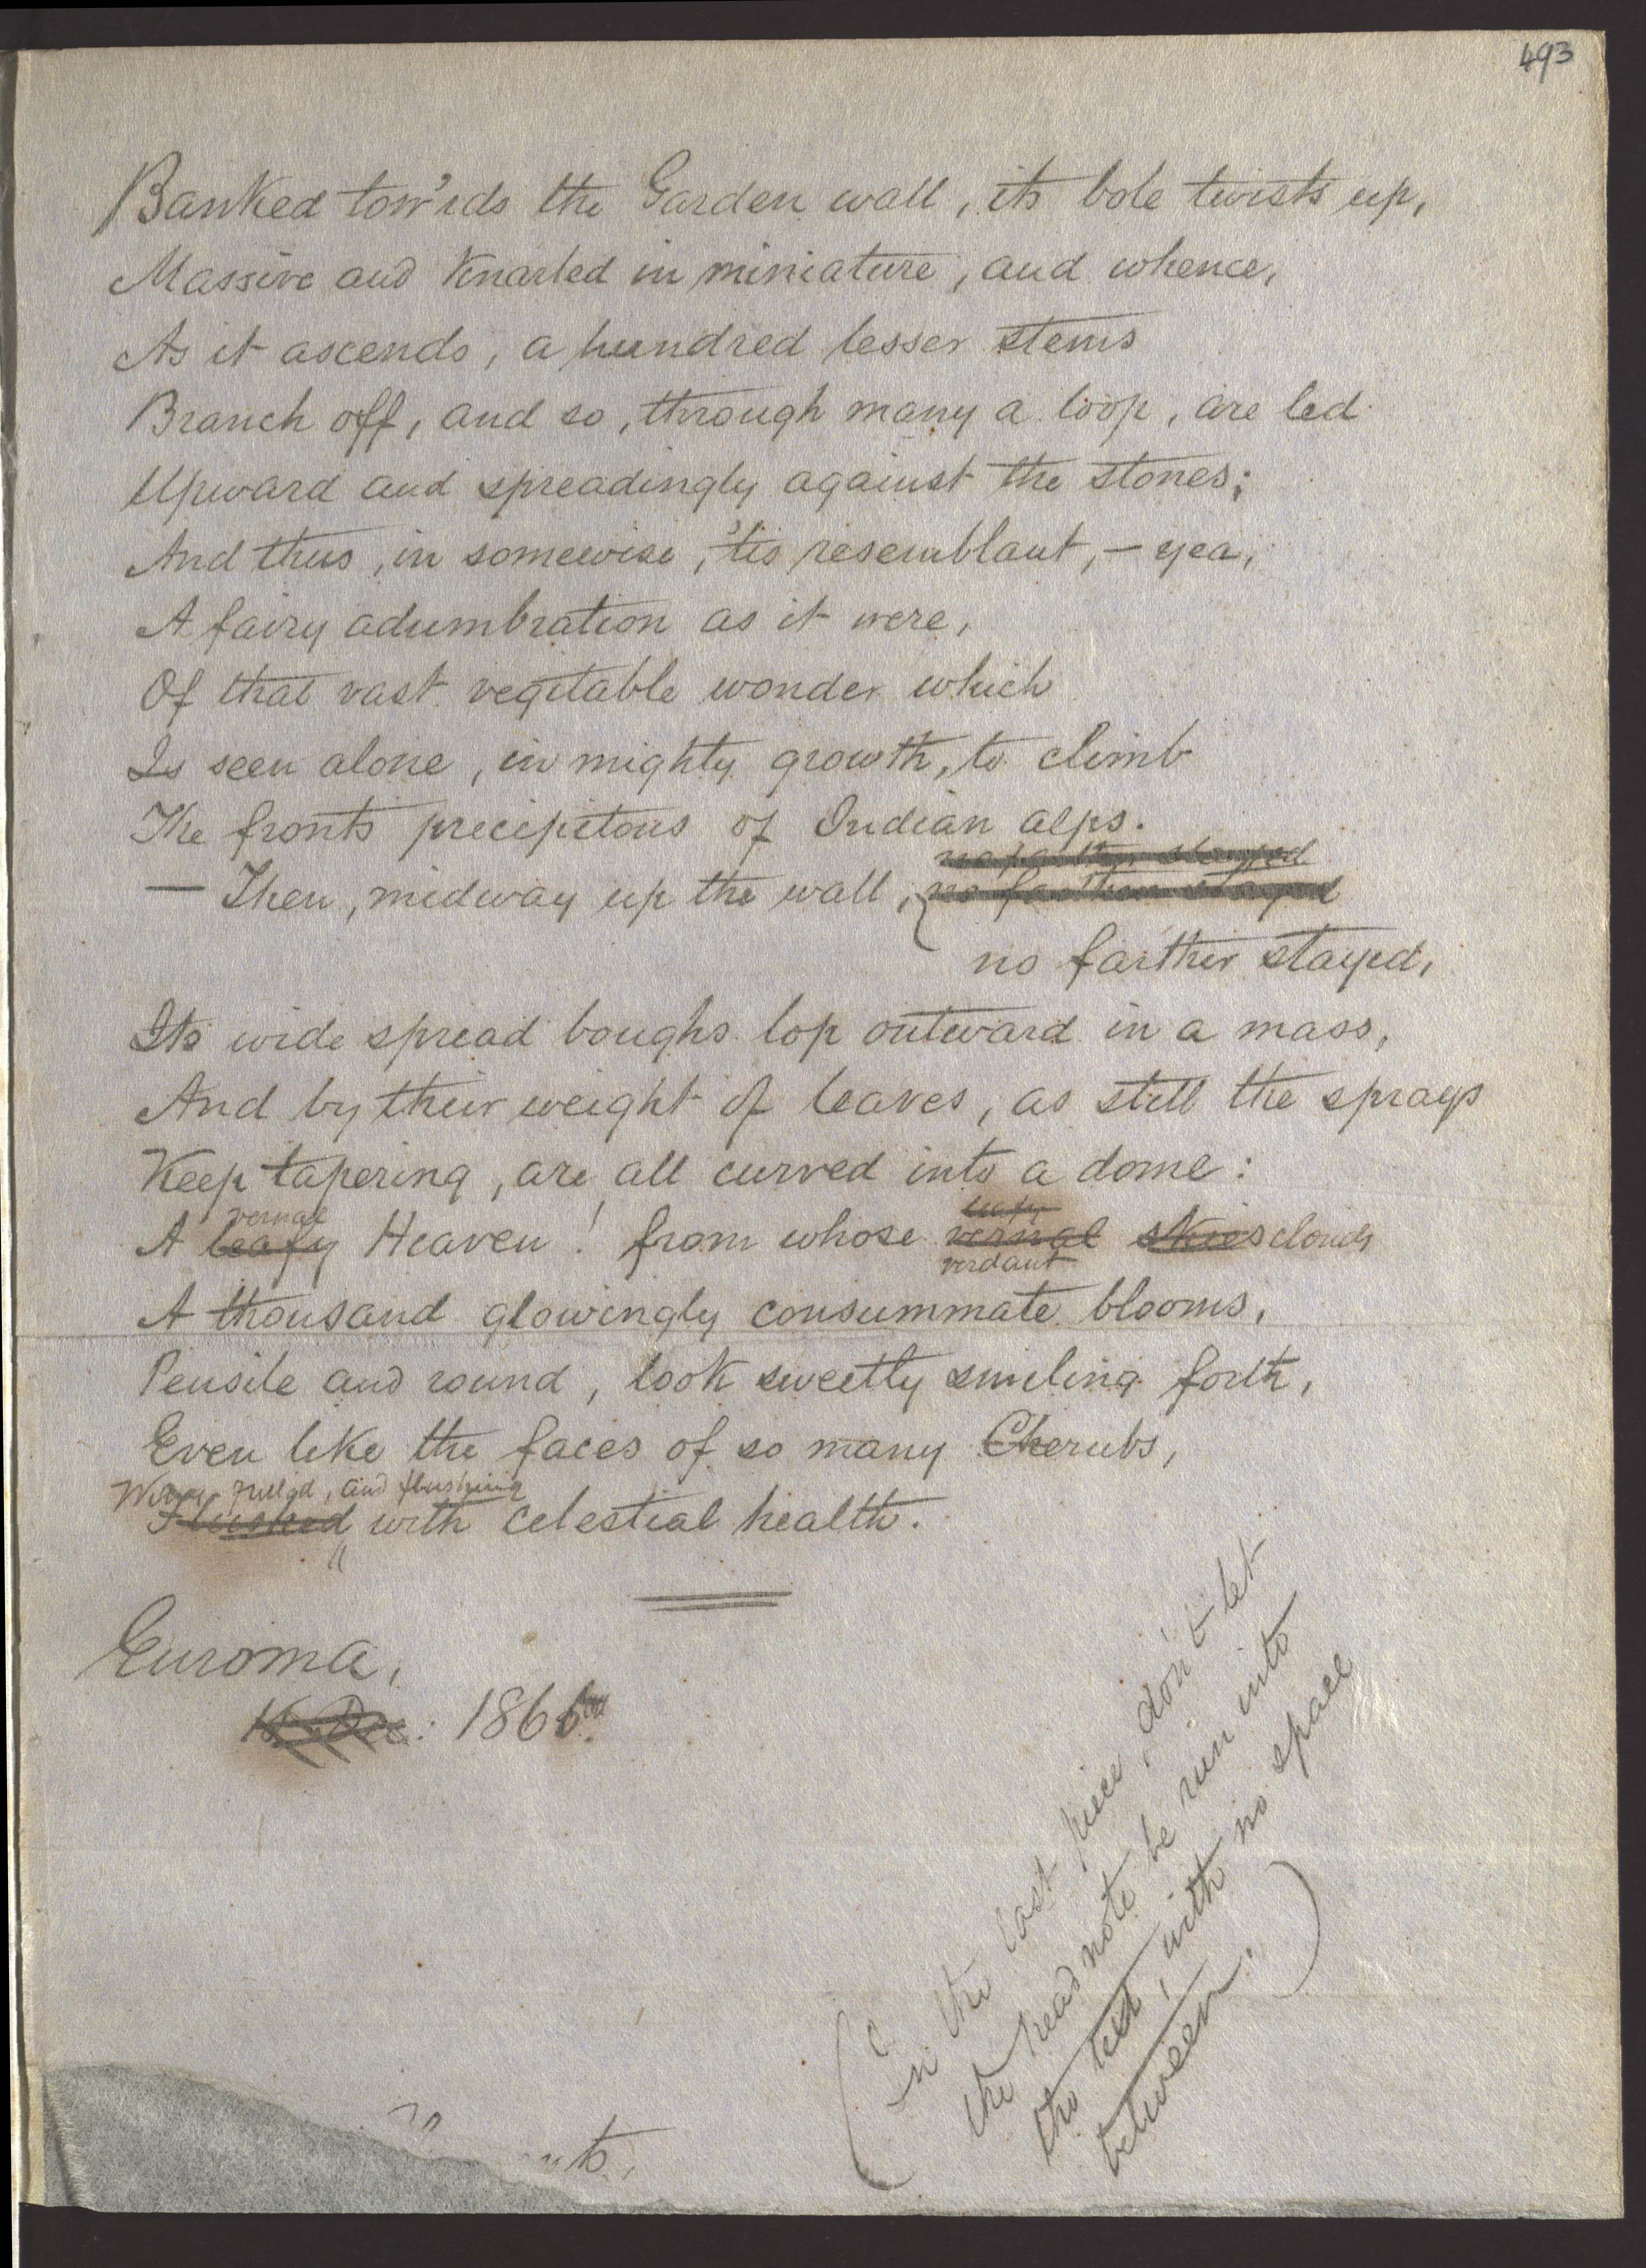 493
Banked tow'rds the Garden wall, its bole twists up,
Massive and Knarled in miniature, and whence,
As it ascends, a hundred lesser stems
Branch off, and so, through many a loop, are led
Upward and spreadingly against the stones;
And thus, in somewise, 'tis resemblant, — yea,
A fairy adumbration as it were,
Of that vast vegitable wonder which
Is seen alone, in mighty growth, to climb
The fronts precipitous of Indian alps.
no farther stayed
— Then, midway up the wall, no farther stayed
no farther stayed,
Its wide spread boughs lop outward in a mass,
And by their weight of leaves, as still the sprays
Keep tapering, are all curved into a dome:
vernal leafy
A leafy Heaven! from whose vernal skies clouds
verdant
A thousand glowingly consummate blooms,
Pensile and round, look sweetly smiling forth,
Even like the faces of so many Cherubs,
and flushing
Flushed with celestial health.
Euroma,
Dec: 186
(In the last piece, don't let
the head note be run into
the text, with no space
between.)